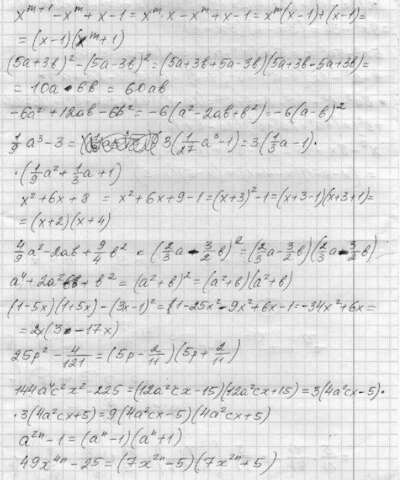 x^{m+1} - x^m + x - 1 = x^m · x - x^m + x - 1 = x^m(x-1) + (x-1) =
= (x-1)(x^m + 1)
(5a+3b)^2 - (5a-3b)^2 = (5a+3b+5a-3b)(5a+3b-5a+3b) =
= 10a · 6b = 60ab
-6a^2 + 12ab - 6b^2 = -6(a^2 - 2ab + b^2) = -6(a-b)^2
1/9 a^3 - 3 = 3(1/27 a^3 - 1) = 3(1/3 a - 1) ·
· (1/9 a^2 + 1/3 a + 1)
x^2 + 6x + 8 = x^2 + 6x + 9 - 1 = (x+3)^2 - 1 = (x+3-1)(x+3+1) =
= (x+2)(x+4)
4/9 a^2 - 2ab + 9/4 b^2 = (2/3 a - 3/2 b)^2 = (2/3 a - 3/2 b)(2/3 a - 3/2 b)
a^4 + 2a^2b + b^2 = (a^2 + b)^2 = (a^2 + b)(a^2 + b)
(1-5x)(1+5x) - (3x-1)^2 = 1 - 25x^2 - 9x^2 + 6x - 1 = -34x^2 + 6x =
= 2x(3 - 17x)
25p^2 - 4/121 = (5p - 2/11)(5p + 2/11)
144a^4c^2x^2 - 225 = (12a^2cx - 15)(12a^2cx + 15) = 3(4a^2cx - 5) ·
· 3(4a^2cx + 5) = 9(4a^2cx - 5)(4a^2cx + 5)
a^{2n} - 1 = (a^n - 1)(a^n + 1)
49x^{4n} - 25 = (7x^{2n} - 5)(7x^{2n} + 5)